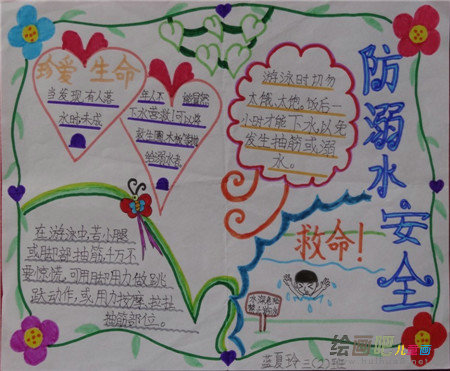 珍爱生命
当发现有人落
水时,未成
年人不
下水营救!可以将
救生圈
给溺水者
游泳时切勿
太饿、太饱。饭后一
小时才能下水,以免
发生抽筋或溺
水。
防溺水安全
在游泳中若小腿
或脚部抽筋,千万不
要惊慌,可用脚用力做跳
跃动作,或用力按摩、拉扯
抽筋部位。
救命!
绘画吧
儿童画
蓝夏玲 三(2)班